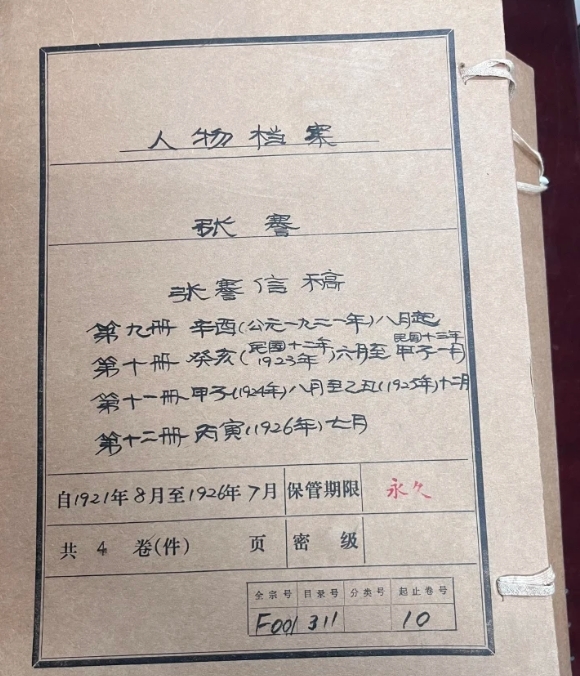 人物档案
张謇
张謇信稿
第九册 辛酉(公元一九二一年)八月起
第十册 癸亥(民国十二年 1923年)六月至 民国十三年 甲子一月
第十一册 甲子(1924年)八月至乙丑(1925年)十二月
第十二册 丙寅(1926年)七月
自1921年8月至1926年7月 保管期限 永久
共 4 卷(件) 页 密级
全宗号 目录号 分类号 起止卷号
F001 311 10